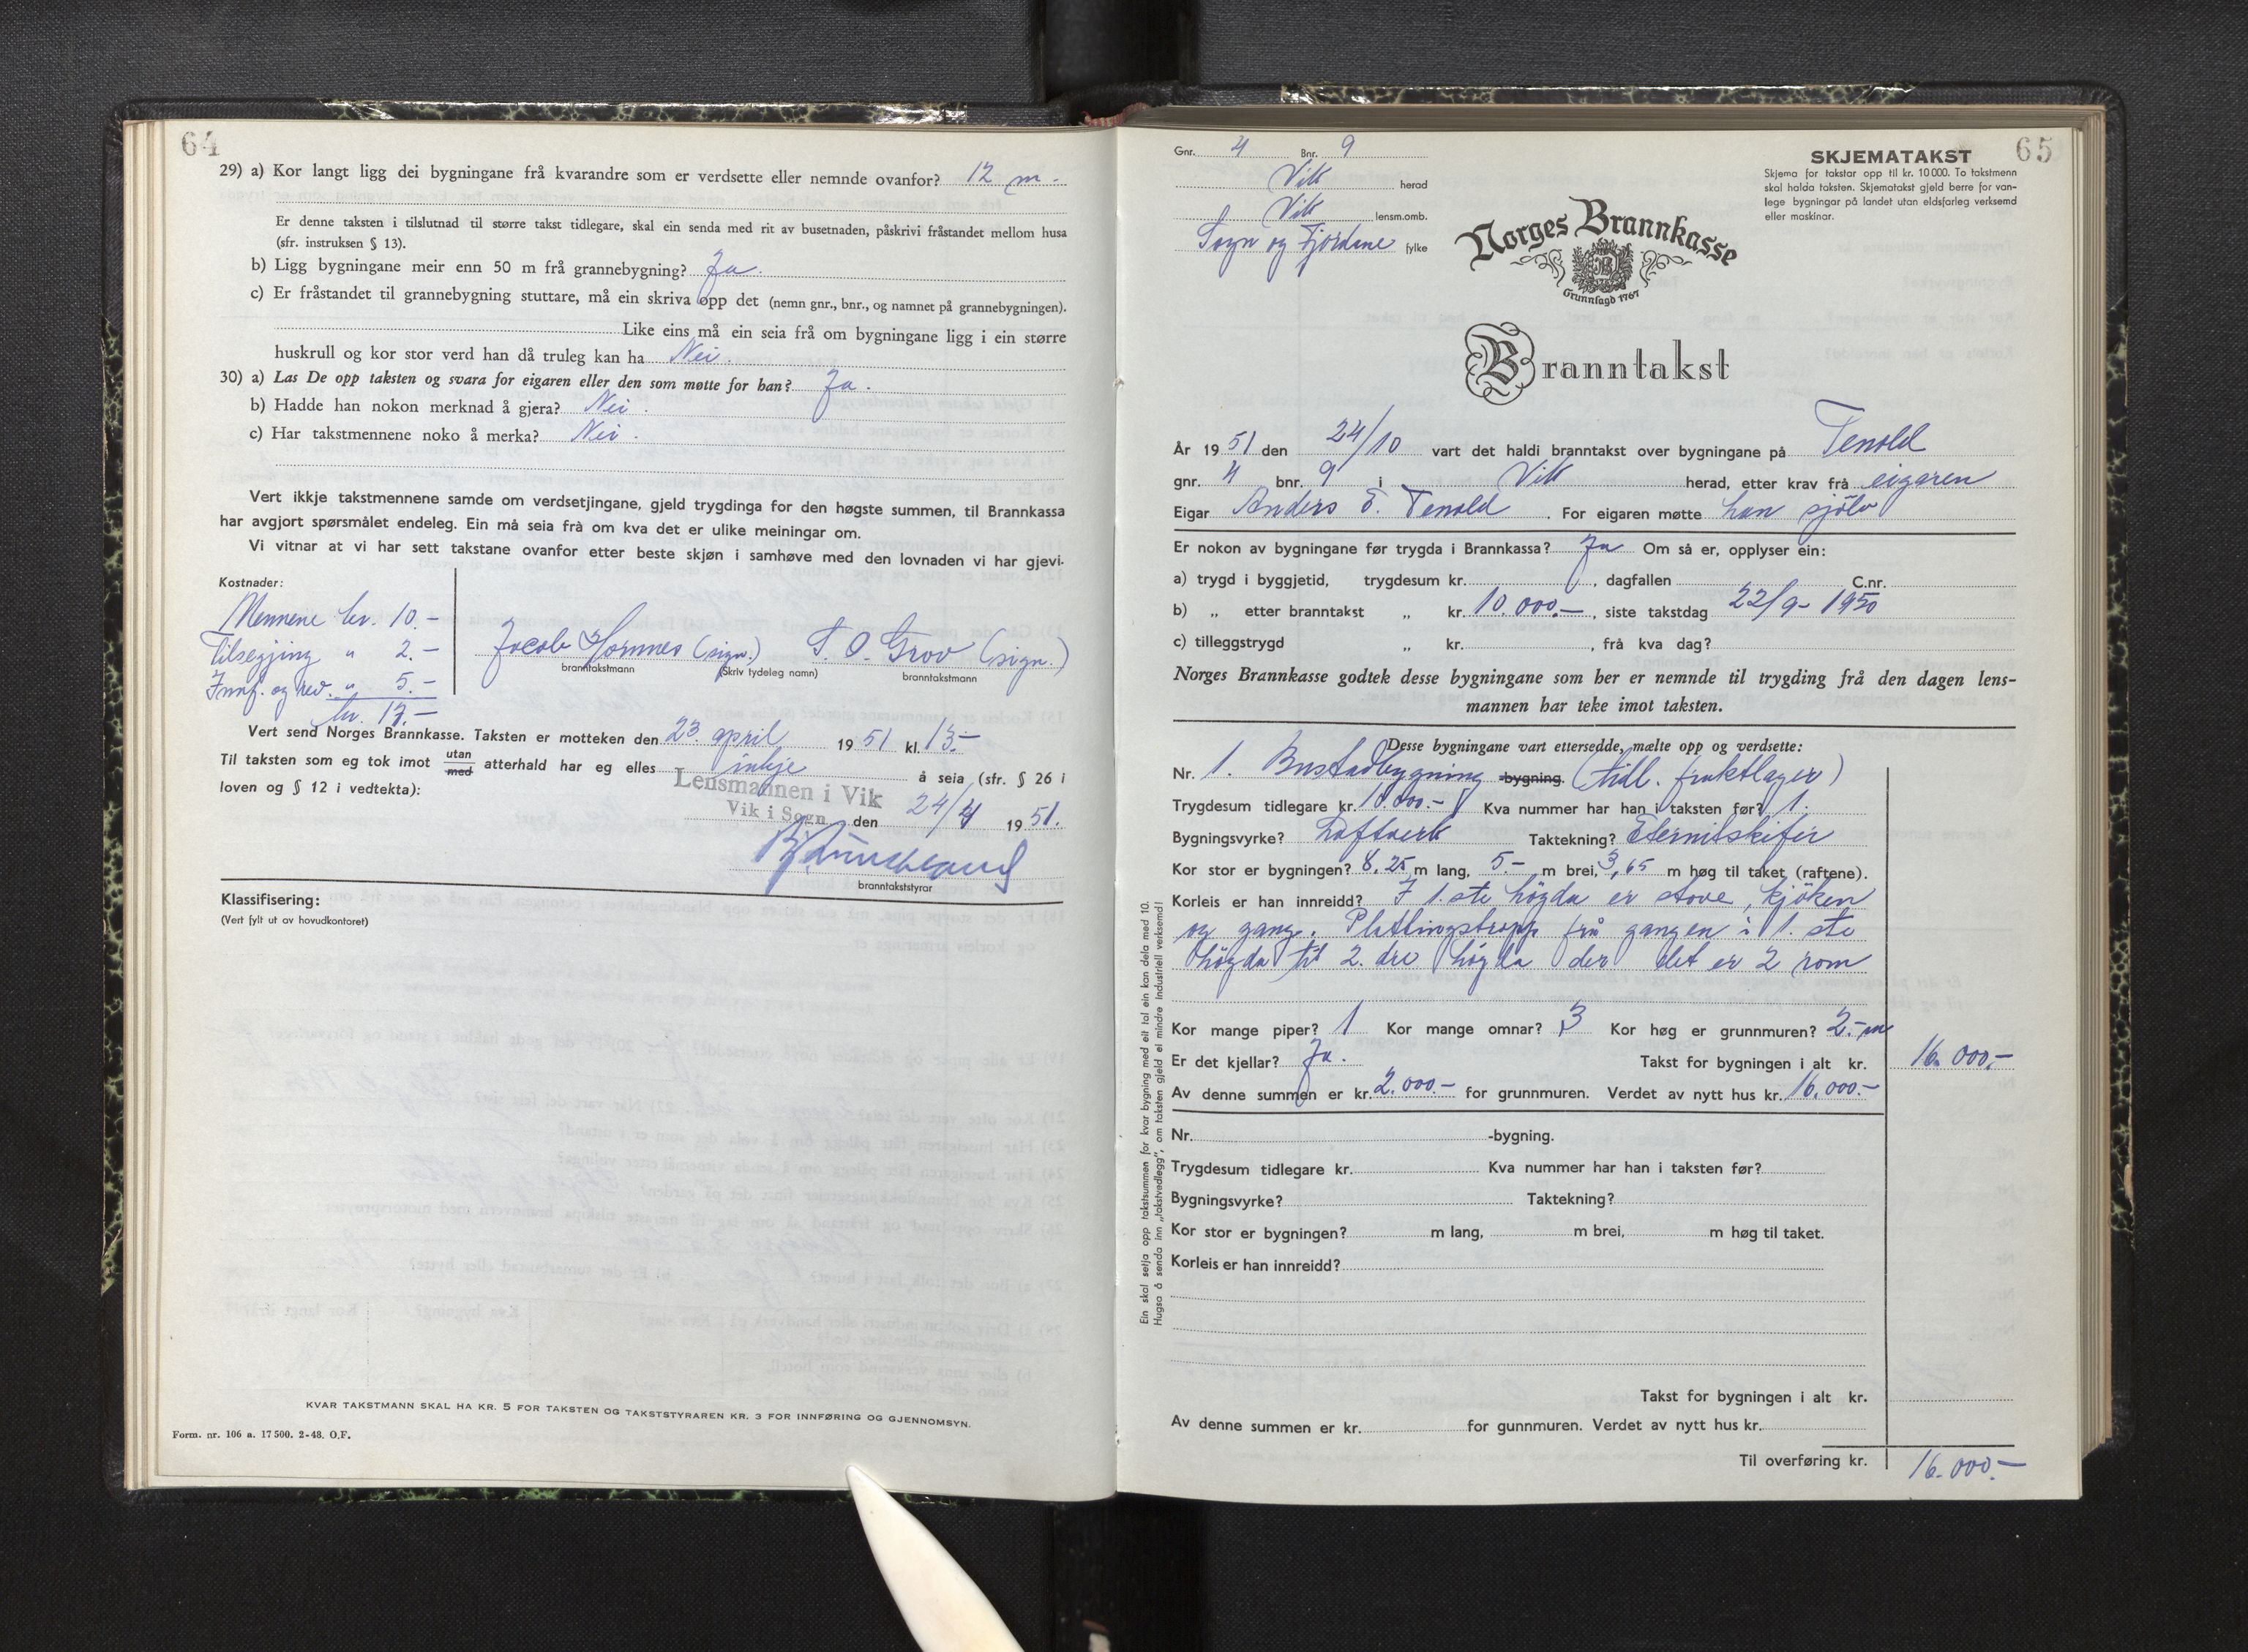 64
29) a) Kor langt ligg dei bygningane frå kvarandre som er verdsette eller nemnde ovanfor? 12 m -
Er denne taksten i tilslutnad til større takst tidlegare, skal ein senda med rit av busetnaden, påskrivi fråstandet mellom husa
(sfr. instruksen § 13).
b) Ligg bygningane meir enn 50 m frå grannebygning? Ja.
c) Er fråstandet til grannebygning stuttare, må ein skriva opp det (nemn gnr., bnr., og namnet på grannebygningen).
Like eins må ein seia frå om bygningane ligg i ein større
huskrull og kor stor verd han då truleg kan ha Nei.
30) a) Las De opp taksten og svara for eigaren eller den som møtte for han? Ja.
b) Hadde han nokon merknad å gjera? Nei.
c) Har takstmennene noko å merka? Nei.
Vert ikkje takstmennene samde om verdsetjingane, gjeld trygdinga for den høgste summen, til Brannkassa
har avgjort spørsmålet endeleg. Ein må seia frå om kva det er ulike meiningar om.
Vi vitnar at vi har sett takstane ovanfor etter beste skjøn i samhøve med den lovnaden vi har gjevi.
Kostnader:
Mennene kr. 10.-
Tilsegjing " 2.-
Innf. og rev. " 5.-
kr. 17.-
Jacob Hornnes (sign.) S. O. Grov (sign.)
branntakstmann (Skriv tydeleg namn) branntakstmann
Vert send Norges Brannkasse. Taksten er motteken den 23. april 1951 kl. 13.-
Til taksten som eg tok imot utan med atterhald har eg elles inkje å seia (sfr. § 26 i
loven og § 12 i vedtekta):
Lensmannen i Vik
Vik i Sogn den 24/4 1951.
branntakststyrar
Klassifisering:
(Vert fylt ut av hovudkontoret)
KVAR TAKSTMANN SKAL HA KR. 5 FOR TAKSTEN OG TAKSTSTYRAREN KR. 3 FOR INNFØRING OG GJENNOMSYN.
Form. nr. 106 a. 17 500. 2-48. O.F.
65
Gnr. 4 Bnr. 9
Vik herad
Vik lensm.omb.
Sogn og Fjordane fylke
SKJEMATAKST
Skjema for takstar opp til kr. 10 000. To takstmenn
skal halda taksten. Skjematakst gjeld berre for van-
lege bygningar på landet utan eldsfarleg verksemd
eller maskinar.
Norges Brannkasse
Grunnlagd 1767
Branntakst
År 1951 den 24/10 vart det haldi branntakst over bygningane på Tenold
gnr. 4 bnr. 9 i Vik herad, etter krav frå eigaren
Eigar Anders E. Tenold. For eigaren møtte han sjölv
Er nokon av bygningane før trygda i Brannkassa? Ja Om så er, opplyser ein:
a) trygd i byggjetid, trygdesum kr. , dagfallen C.nr.
b) „ etter branntakst „ kr. 10.000.-, siste takstdag 22/9- 1950
c) tilleggstrygd „ kr. , frå kva dag?
Norges Brannkasse godtek desse bygningane som her er nemnde til trygding frå den dagen lens-
mannen har teke imot taksten.
Desse bygningane vart ettersedde, mælte opp og verdsette:
Nr. 1. Bustadbygning -bygning. (tidl. fruktlager)
Trygdesum tidlegare kr. 10.000.- Kva nummer har han i taksten før? 1.
Bygningsvyrke? Laftverk Taktekning? Eternitskifer
Kor stor er bygningen? 8,25 m lang, 5.- m brei, 3,65 m høg til taket (raftene).
Korleis er han innreidd? I 1.ste högda er stove, kjöken
og gang. Plattingstropp frå gangen i 1. ste
högda til 2. dre högda der det er 2 rom
Kor mange piper? 1 Kor mange omnar? 3 Kor høg er grunnmuren? 2.- m
Er det kjellar? Ja. Takst for bygningen i alt kr. 16.000.-
Av denne summen er kr. 2.000.- for grunnmuren. Verdet av nytt hus kr. 16.000.-
Nr. -bygning.
Trygdesum tidlegare kr. Kva nummer har han i taksten før?
Bygningsvyrke? Taktekning?
Kor stor er bygningen? m lang, m brei, m høg til taket.
Korleis er han innreidd?
Takst for bygningen i alt kr.
Av denne summen er kr. for gunnmuren. Verdet av nytt hus kr.
Til overføring kr. 16.000.-
Ein skal setja opp takstsummen for kvar bygning med eit tal ein kan dela med 10.
Hugsa å senda inn „takstvedlegg", om taksten gjeld ei mindre industriell verksemd!